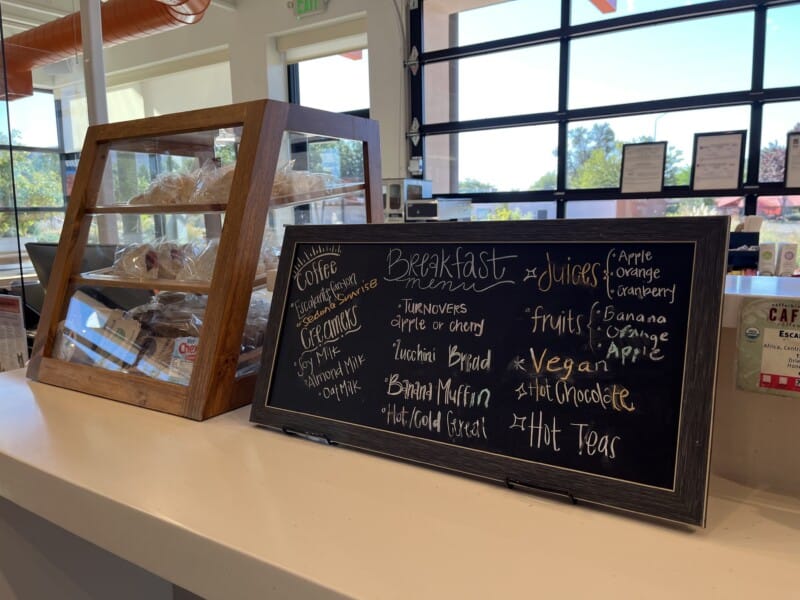 EXIT
Coffee
Escalante fusion
Sedona Sunrise
Creamers
Soy Milk
Almond Milk
Oat Milk
Breakfast
menu
TURNOVERS
apple or cherry
Zucchini Bread
Banana Muffin
Hot/Cold Cereal
Juices
Apple
Orange
Cranberry
fruits
Banana
Orange
Apple
Vegan
Hot Chocolate
Hot Teas
CAF